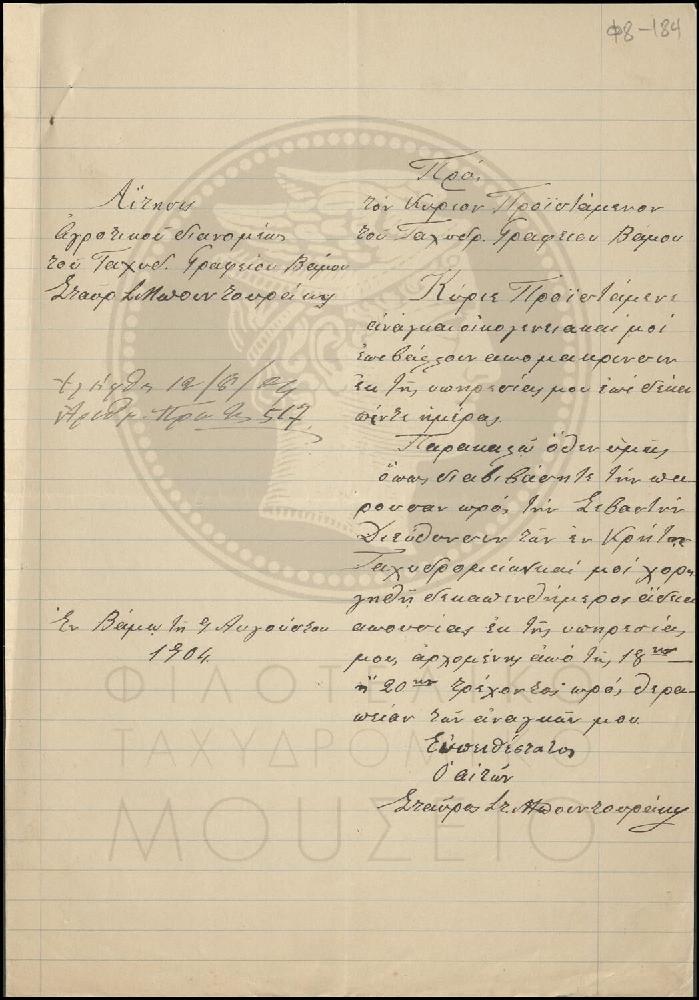 Φ8-184
Αἴτησις
Ἀγροτικοῦ διανομέως
τοῦ Ταχυδ. Γραφείου Βάμου
Σταυρ Σ. Μπουντουράκη
Ἐλήφθη 12/8/04
Ἀριθμ. Πρωτ. 517
Ἐν Βάμῳ τῇ 9 Αὐγούστου
1904.
Πρὸς
τὸν Κύριον Προϊστάμενον
τοῦ Ταχυδρ. Γραφείου Βάμου
Κύριε Προϊστάμενε
ἀνάγκαι οἰκογενειακαὶ μοὶ
ἐπιβάλλουν απομάκρυνσιν
ἐκ τῆς υπηρεσίας μου ἐπὶ δεκα
πέντε ἡμέρας.
Παρακαλῶ ὅθεν ὑμᾶς
ὅπως διαβιβάσητε τὴν πα-
ρουσαν πρὸς τὴν Σεβαστὴν
Διεύθυνσιν τῶν ἐν Κρήτῃ
Ταχυδρομείων καὶ μοὶ χορη
γηθῇ δεκαπενθήμερος ἄδεια
απουσίας ἐκ τῆς υπηρεσίας
μου, ἀρχομένης ἀπὸ τῆς 18ης
ἢ 20ης τρέχοντος πρὸς θερα-
πείαν τῶν ἀναγκῶν μου
Εὐπειθέστατος
Ὁ αἰτῶν
Σταῦρος Στ. Μπουντουράκης
ΦΙΛΟΤΕΛΙΚΟ
ΤΑΧΥΔΡΟΜΙΚΟ
ΜΟΥΣΕΙΟ